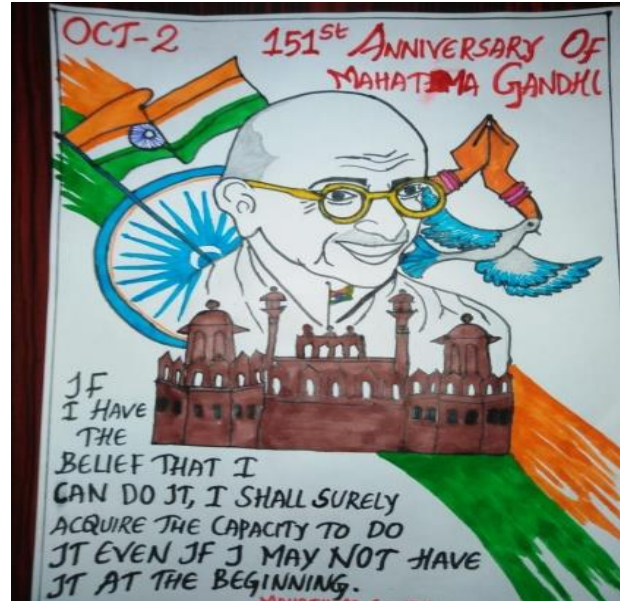 OCT-2 151st ANNIVERSARY OF
MAHATMA GANDHI
IF
I HAVE
THE
BELIEF THAT I
CAN DO IT, I SHALL SURELY
ACQUIRE THE CAPACITY TO DO
IT EVEN IF I MAY NOT HAVE
IT AT THE BEGINNING.